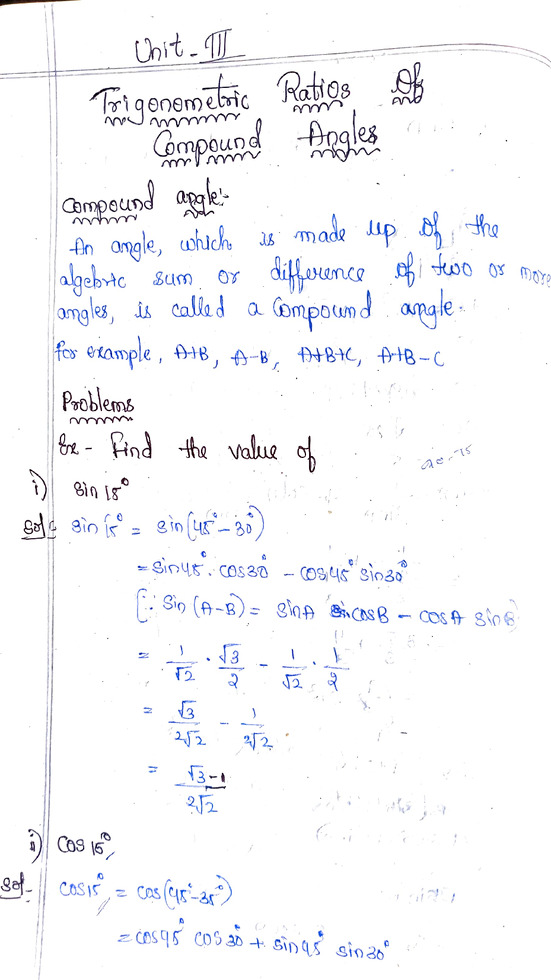 Unit - III
Trigonometric Ratios Of
Compound Angles
Compound angle:-
An angle, which is made up of the
algebric sum or difference of two or more
angles, is called a Compound angle.
for example, A+B, A-B, A+B+C, A+B-C
Problems
Ex - Find the value of
i) sin 15°
Sol:- sin 15° = sin(45°-30°)
= sin45°. cos30° - cos45° sin30°
[∵ Sin (A-B) = sinA cosB - cosA sinB
= 1/√2 . √3/2 - 1/√2 . 1/2
= √3/2√2 - 1/2√2
= √3-1/2√2
ii) cos 15°,
Sol- cos15°, = cos(45°-35°)
= cos45° cos30° + sin45° sin30°